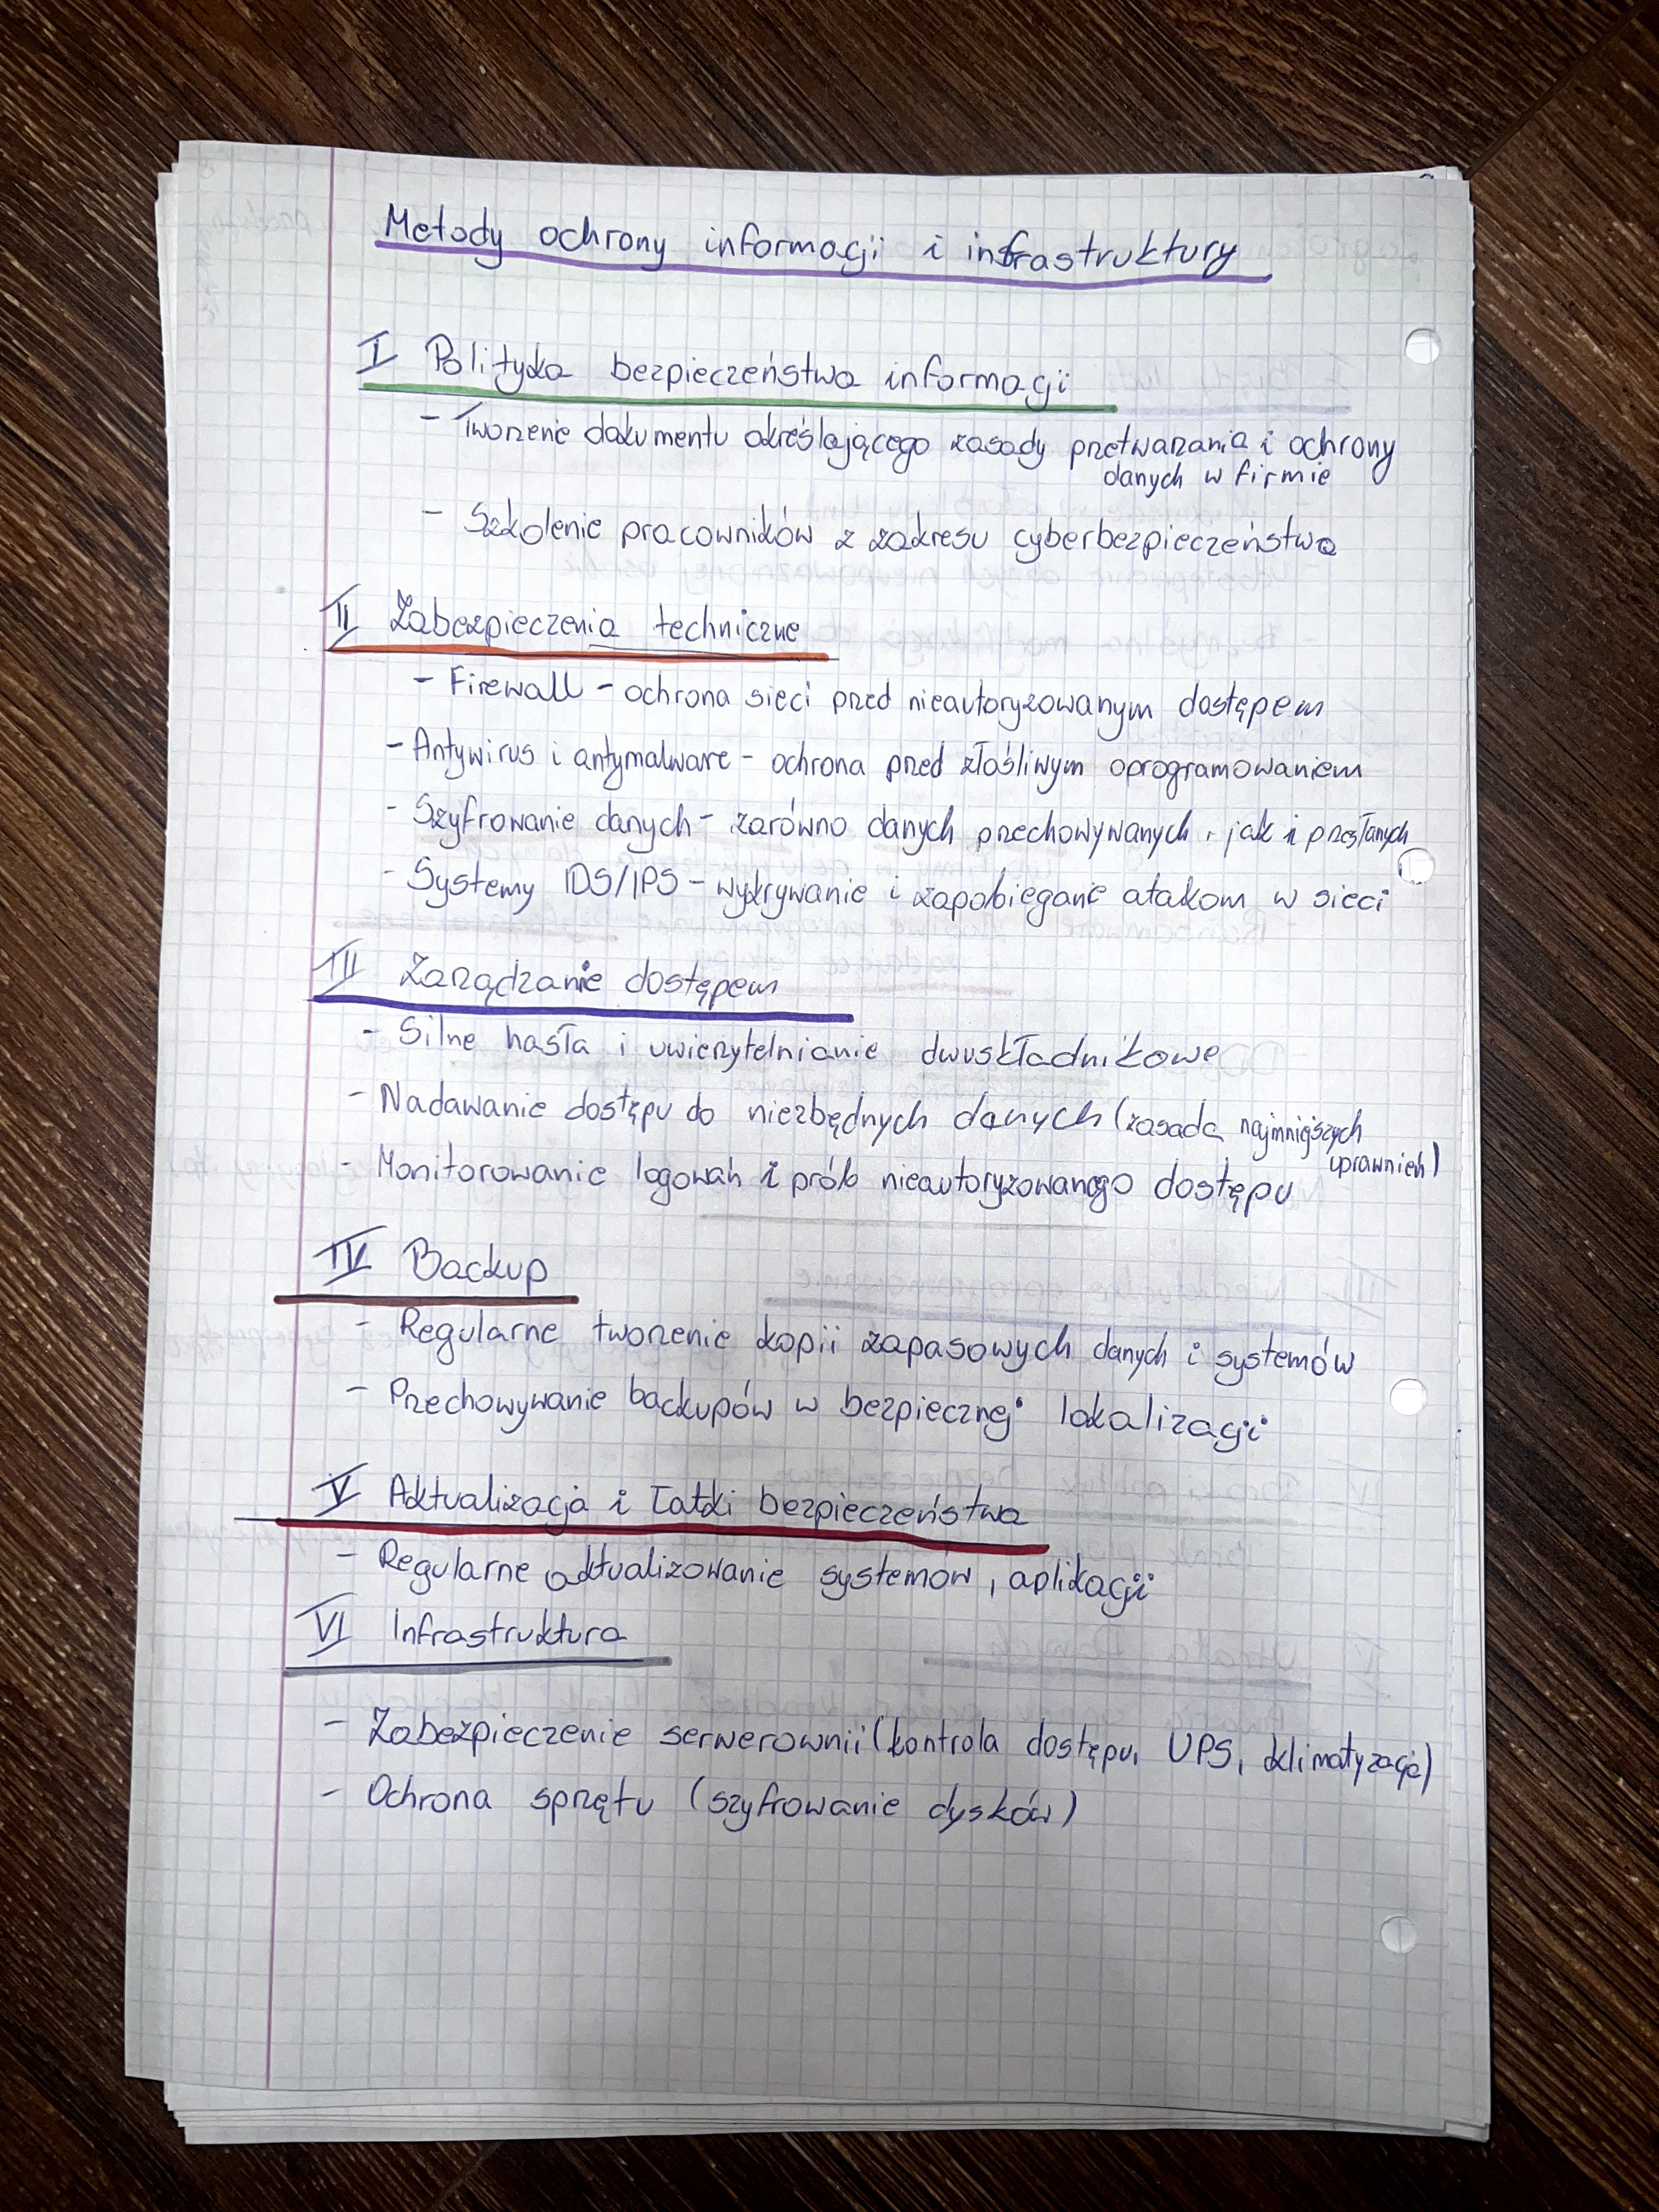 Metody ochrony informacji i infrastruktury
I Polityka bezpieczeństwa informacji
- Tworzenie dokumentu określającego zasady przetwarzania i ochrony
danych w firmie
- Szkolenie pracowników z zakresu cyberbezpieczeństwa
II Zabezpieczenia techniczne
- Firewall - ochrona sieci przed nieautoryzowanym dostępem
- Antywirus i antymalware - ochrona przed złośliwym oprogramowaniem
- Szyfrowanie danych - zarówno danych przechowywanych, jak i przesłanych
- Systemy IDS/IPS - wykrywanie i zapobieganie atakom w sieci
III Zarządzanie dostępem
- Silne hasła i uwierzytelnianie dwuskładnikowe
- Nadawanie dostępu do niezbędnych danych (zasada najmniejszych
uprawnień)
- Monitorowanie logowań i prób nieautoryzowanego dostępu
IV Backup
- Regularne tworzenie kopii zapasowych danych i systemów
- Przechowywanie backupów w bezpiecznej lokalizacji
V Aktualizacja i łatki bezpieczeństwa
- Regularne aktualizowanie systemów, aplikacji
VI Infrastruktura
- Zabezpieczenie serwerowni (kontrola dostępu, UPS, klimatyzacja)
- Ochrona sprzętu (szyfrowanie dysków)